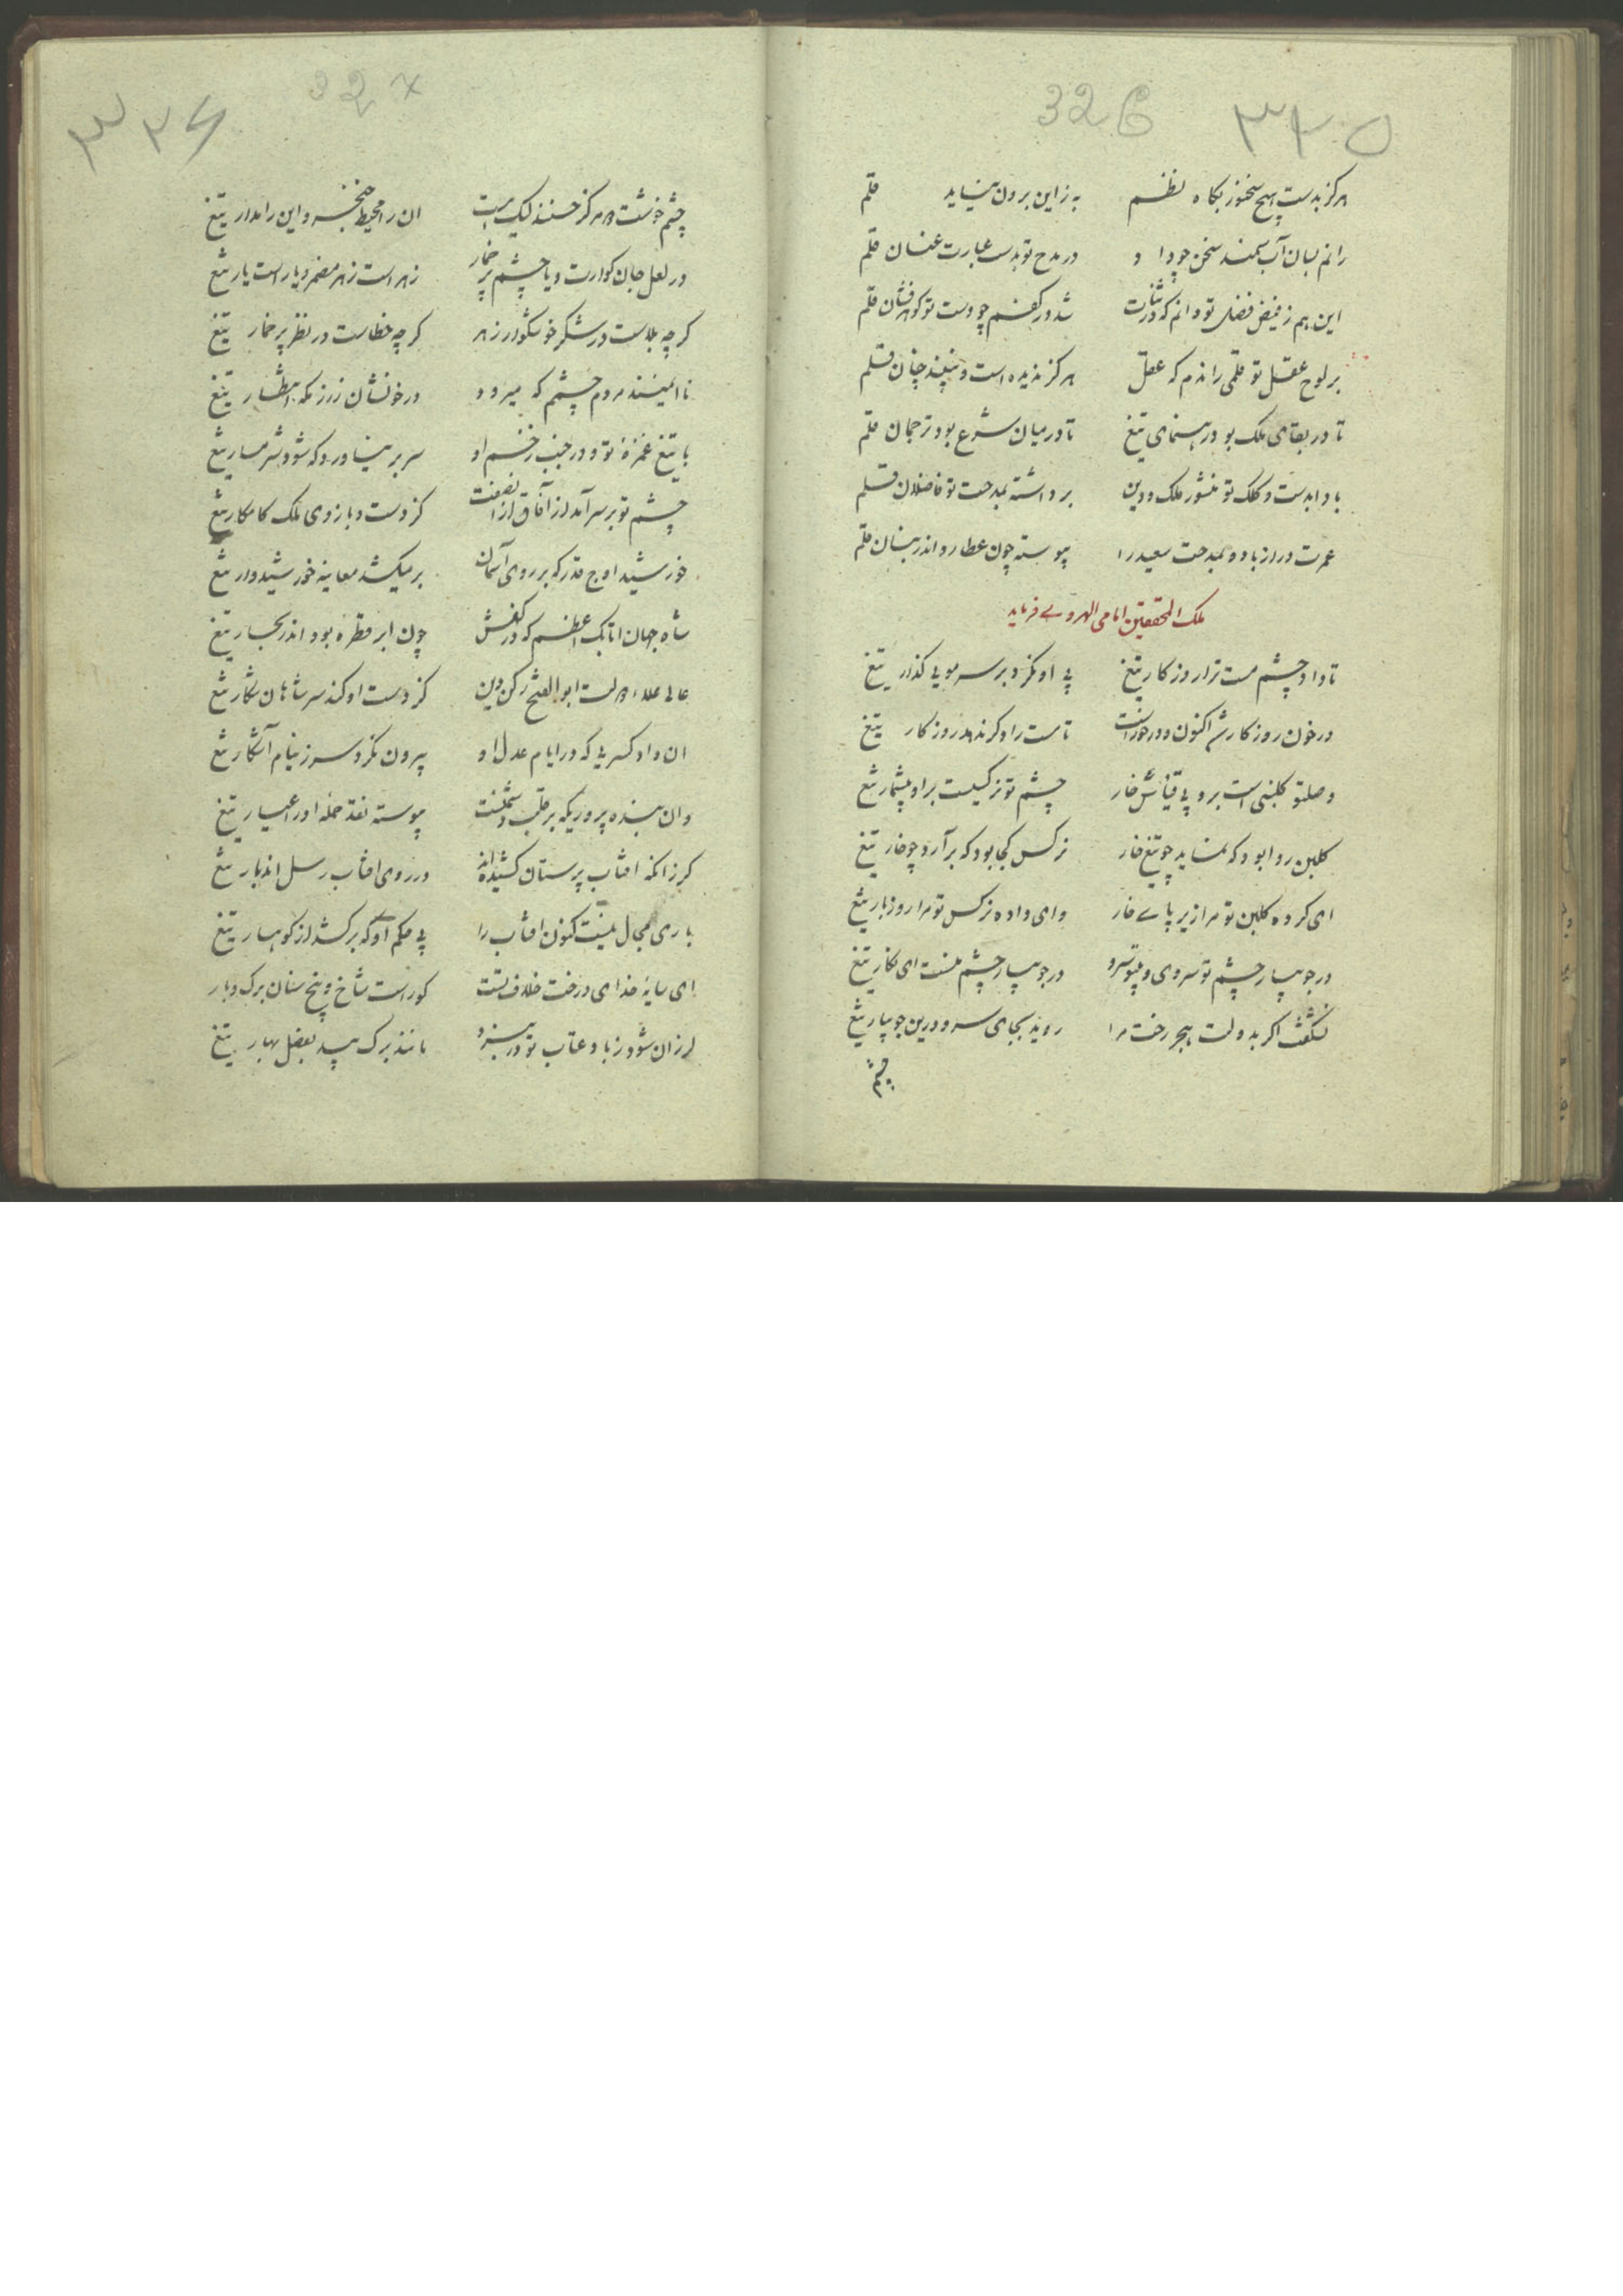 326 ۳۲۵
هرکز بدست هیچ سخنور بکاه نظم به زاین برون نیاید قلم
رانم بسان آب سمند سخن چو داد در مدح تو بدست عبارت عنان قلم
این هم ز فیض فضل تو دانم که در ثنات شد در کفم چو دست تو کوهرفشان قلم
بر لوح عقل تو قلمی راندم که عقل هرکز ندیده است و نبیند چنان قلم
تا در بقای ملک بود رهنمای تیغ تا در میان شرع بود ترجمان قلم
بادا بدست و کلک تو منشور ملک و دین برداشته بمدحت تو فاضلان قلم
عمرت دراز باد و بمدحت سعید را پیوسته چون عطارد اندر بنان قلم
ملک المحققین امامی الهروی فرماید
تا داد چشم مست ترا روزکار تیغ بی او نکرد بر سر مویی کذار تیغ
در خون روزکار شد اکنون و در خوراست تا مست را دکر ندهد روزکار تیغ
وصل تو کلبنی است برو بی قیاس خار چشم تو نرکسیست برو بیشمار تیغ
کلبن روا بود که نماید چو تیغ خار نرکس کجا بود که برآرد چو خار تیغ
ای کرده کلبن تو مرا زیر پای خار وای داده نرکس تو مرا روز بار تیغ
در جویبار چشم تو سروی و بیتو سرو در جویبار چشم منست ای نکار تیغ
نشکفت اکر بدولت هجر رخت مرا روید بجای سرو درین جویبار تیغ
چشم
327 ۳۲۶
چشم خوشت هرکز خسته لیک ان را محیط خنجر و این را مدار تیغ
در لعل جان کوارت و با چشم پر خمار زهر است زهر مضمر و یار است یار تیغ
کرچه بلاست در شکر خوشکوار زهر کرچه خطاست در نظر پر خمار تیغ
نا ایمنند مردم چشمم که میرود در خونشان ز زمکه انتظار تیغ
با تیغ غمزهٔ تو و در جنب زخم او سر بر نیاورد که شود شرمسار تیغ
چشم تو بر سر آمد از آفاق کز دست و بازوی ملک کامکار تیغ
خورشید اوج قدر که بر روی آسمان برمیکشد معاینه خورشیدوار تیغ
شاه جهان اتابک اعظم که در کفش چون ابر قطره بود اندر بحار تیغ
عالی علاء دولت ابوالفتح رکن دین کز دست او کند سر شاهان شکار تیغ
ان داد کسریی که در ایام عدل او بیرون نکرد سر ز نیام آشکار تیغ
وان بنده پروریکه بر قلب دشمنت پیوسته نقد حمله او را عیار تیغ
کر زانکه افتاب پرستان کشیده‌اند در روی افتاب رسل اندبار تیغ
باری مجال نیست کنون افتاب را بی حکم او که برکشد از کوهسار تیغ
ای سایهٔ خدای درخت خلاف تست کوراست شاخ و بیخ سنان برک و بار
لرزان شود ز باد عتاب تو در نبرد مانند برک بید بفصل بهار تیغ